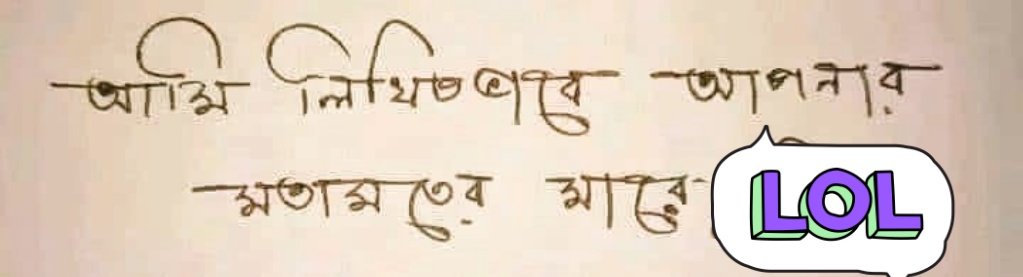 আমি লিখিতভাবে আপনার
মতামতের মারে
LOL